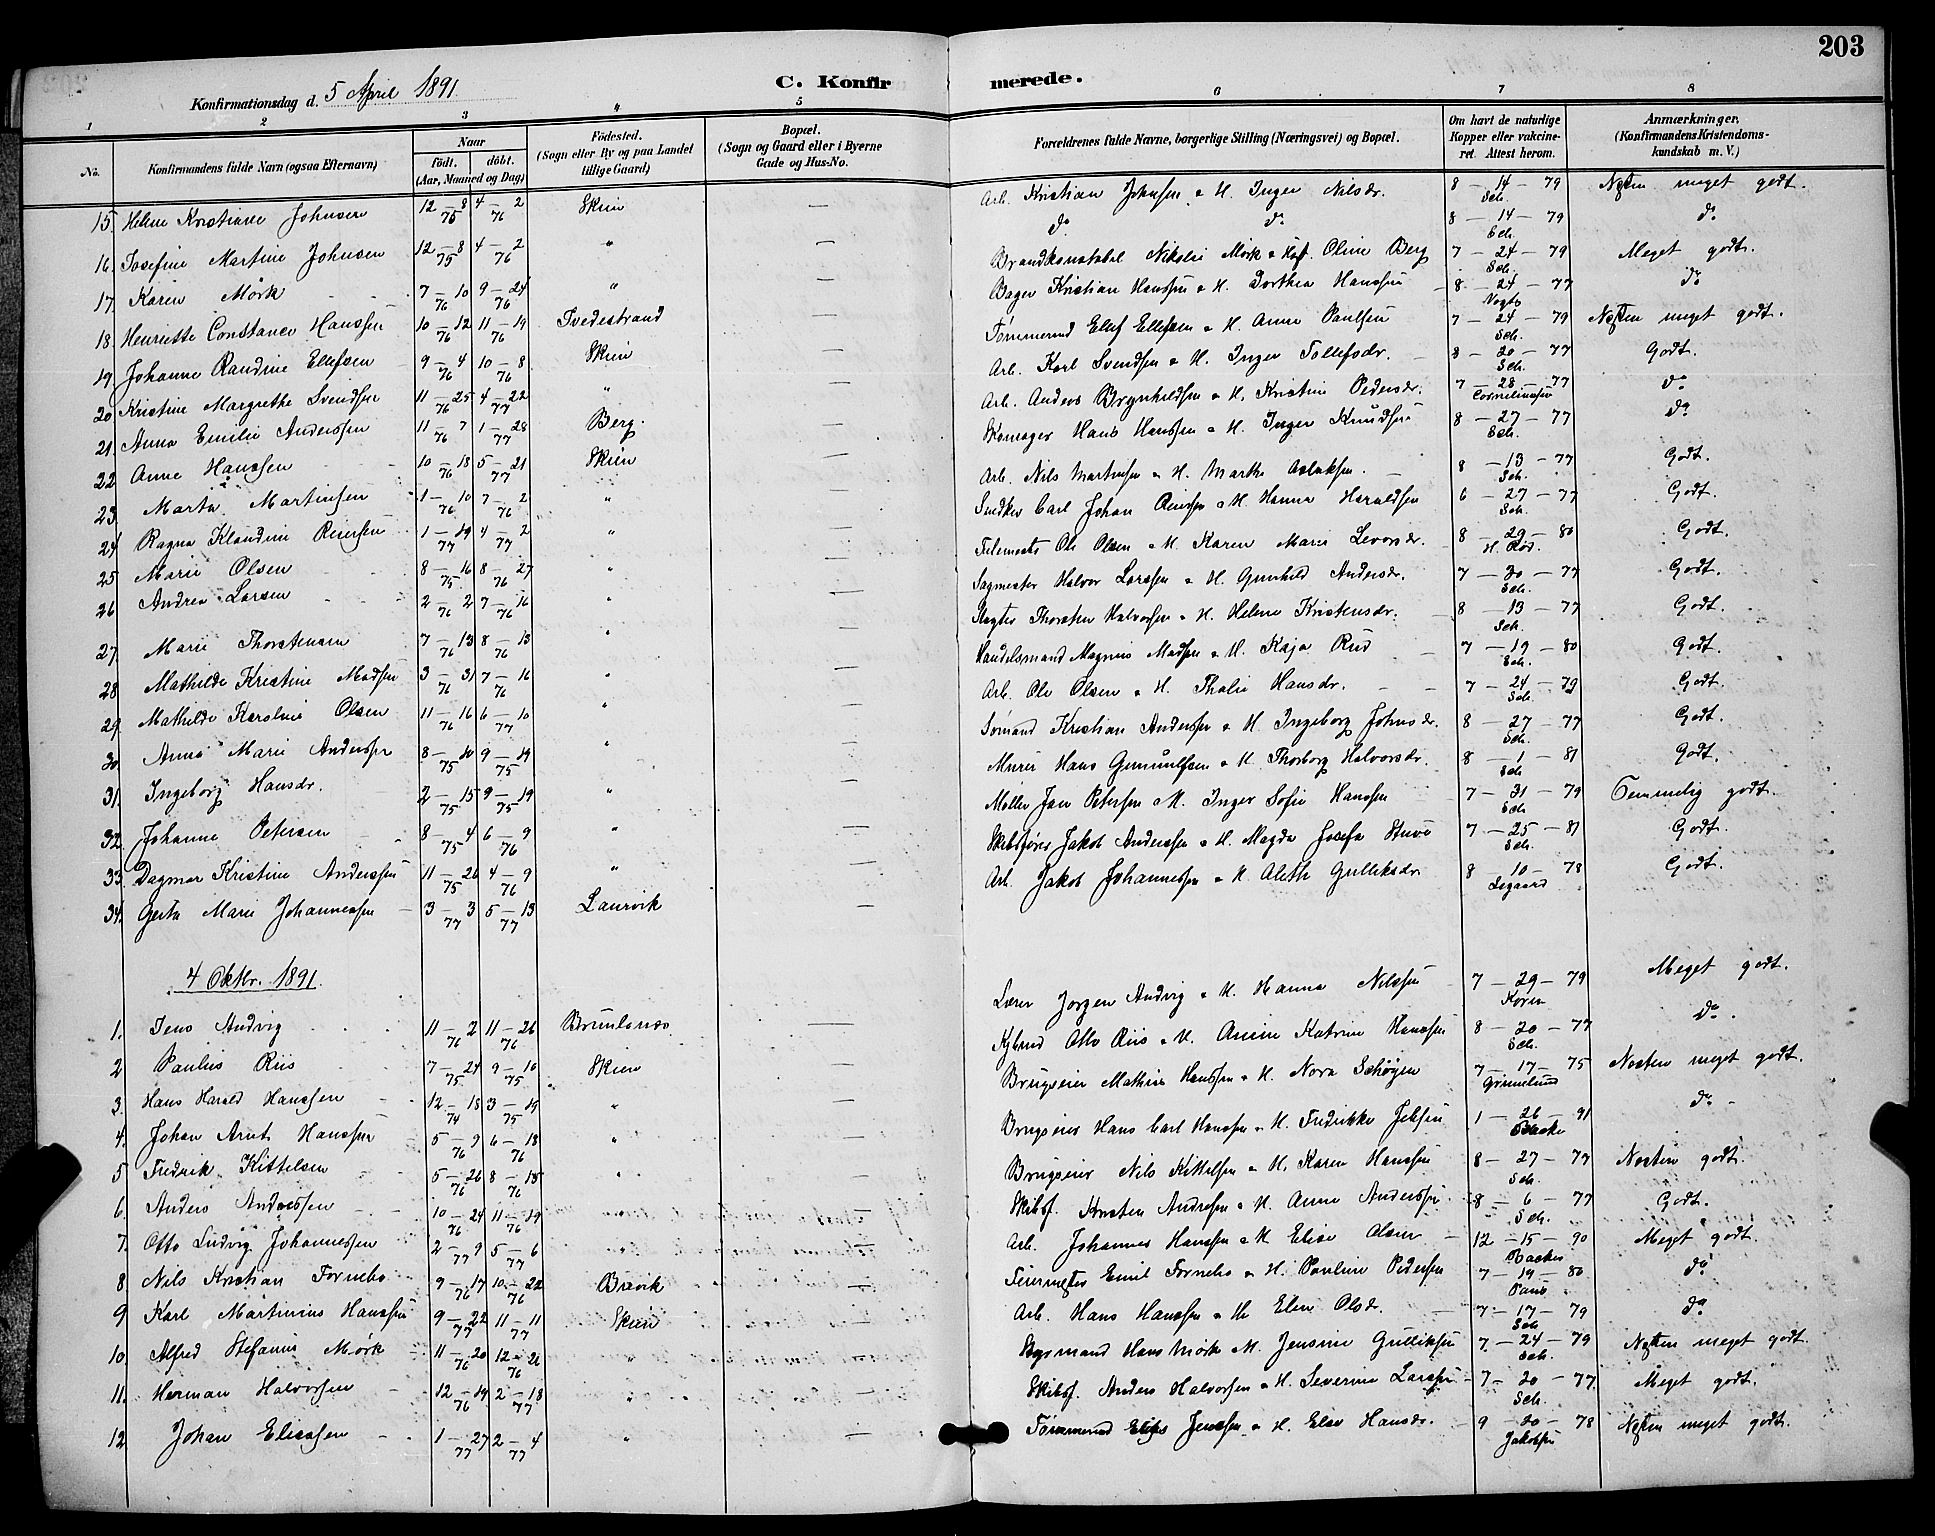 203
Konfirmationsdag d. 5 April 1891
C. Konfirmerede.
1 2 3 4 5 6 7 8
No. Konfirmandens fulde Navn (ogsaa Efternavn) Naar födt. döbt. (Aar, Maaned og Dag) Födested. (Sogn eller By og paa Landet tillige Gaard) Bopæl. (Sogn og Gaard eller i Byerne Gade og Hus-No. Forældrenes fulde Navne, borgerlige Stilling (Næringsvei) og Bopæl. Om havt de naturlige Kopper eller vakcineret. Attest herom. Anmærkninger. (Konfirmandens Kristendomskundskab m. V.)
15. Helene Kristiane Johnsen 12-8 75 4-2 76 Skien — Arb. Kristian Johnsen & H. Inger Nilsdr. 8-14-79 Sch. Næsten meget godt.
16. Josefine Martine Johnsen 12-8 75 4-2 76 " — do do 8-14-79 Sch. do
17. Karen Mörk 7-10 76 9-24 76 " — Brandkonstabel Nikolai Mörk & Hust. Oline Berg 7-24-79 Sch. Meget godt.
18. Henriette Constance Hanssen 10-12 76 11-19 76 Tvedestrand — Bager Kristian Hanssen & H. Dorthea Hanssen 8-24-77 Vogts do
19. Johanne Randine Ellefsen 9-4 76 10-8 76 Skien — Tømmermd Ellef Ellefsen & H. Anne Paulsen 7-24-79 Sch. Næsten meget godt.
20. Kristine Margrethe Svendsen 11-25 76 4-22 77 " — Arb. Karl Svendsen & H. Inger Tollefsdr. 8-20-77 Sch. Godt.
21. Anna Emilie Anderssen 11-7 76 1-28 77 Berg. — Arb. Anders Brynhildsen & H. Kristine Pedersdr. 7-28-77 Corneliussen do
22. Anne Hanssen 10-18 76 5-21 77 Skien — Skomager Hans Hanssen & H. Inger Knudsen 8-27-77 Sch. do
23. Marta Martinsen 1-10 76 7-2 76 " — Arb. Nils Martinsen & H. Marthe Aslaksen. 8-13-77 Sch. Godt.
24. Ragna Klaudine Reiersen 1-19 77 4-2 77 " — Snedker Carl Johan Reiersen & H. Hanna Haraldsen 6-27-77 Sch. Godt.
25. Marie Olsen 8-16 75 8-27 76 " — Ole Olsen & H. Karen Marie Levorsdr. 8-29-80 H. Röd. Godt.
26. Andrea Larsen 2-2 76 7-16 76 " — Sagmester Halvor Larssen & H. Gunhild Andersdr. 7-20-77 Sch. Godt.
27. Marie Thorstensen 7-13 76 8-13 76 " — Slagter Thorsten Halvorsen & H. Helene Kristensdr. 8-13-77 Sch. Godt.
28. Mathilde Kristine Madsen 3-31 76 7-16 76 " — Handelsmand Magnus Madsen & H. Kaja Rud 7-19-80 Sch. Godt.
29. Mathilde Karoline Olsen 11-16 76 6-10 77 " — Arb. Ole Olsen & H. Thalie Hansdr. 7-24-79 Sch. Godt.
30. Anna Marie Anderssen 8-10 75 9-19 75 " — Sömand Kristian Anderssen & H. Ingeborg Johnsdr. 8-27-77 Sch. Godt.
31. Ingeborg Hansdr. 2-15 75 9-19 75 " — Murer Hans Gunnulfsen & H. Thorborg Halvorsdr. 8-1-81 Sch Godt.
32. Johanne Petersen 8-4 75 6-9 76 " — Møller Jan Petersen & H. Inger Sofie Hanssen 7-31-79 Sch Temmelig godt.
33. Dagmar Kristine Anderssen 11-26 75 4-9 76 " — Skibsfører Jakob Anderssen & H. Magda Josefa Stuve 7-25-81 Sch. Godt.
34. Gerta Marie Johannessen 3-3 77 5-13 77 Laurvik — Arb. Jakob Johannessen & H. Aleth Gulliksdr 8-10-78 Legaard Godt.
4 Oktbr. 1891.
1. Jens Andvig 11-2 76 11-26 76 Brunlanæs. — Lærer Jørgen Andvig & H. Hanna Nilssen 7-29-79 Koren Meget godt.
2 Paulus Riis 7-24 75 9-10 75 Skien — Otto Riis & H. Anine Katrine Hanssen 8-20-77 Sch. do
3. Hans Harald Hanssen 12-18 74 3-19 75 " — Brugseier Mathias Hanssen & H. Nora Schøgen 7-17-75 Grimelund Næsten meget godt.
4. Johan Arnt Hanssen 5-9 76 6-18 76 " — Brugseier Hans Carl Hanssen & H. Fredrikke Jebsen 1-26-91 Backe do
5 Fredrik Kittelsen 5-26 76 8-15 76 " — Brugseier Nils Kittelsen & H. Karen Hanssen 8-27-77 Sch. Næsten godt.
6. Anders Andressen 10-24 76 11-19 76 " — Skibsf. Kristen Andresen & H. Anne Anderssen 8-6-77 Sch. Godt.
7. Otto Ludvig Johannessen 2-9 77 5-6 77 " — Arb. Johannes Hanssen & H Elise Olsen 12-15-90 Backer Meget godt.
8 Nils Kristian Fornebo 9-17 76 10-22 76 Brevik — Emil Fornebo & H. Pauline Pedersen 7-19-80 Paus do
9 Karl Martinius Hanssen 9-22 77 11-11 77 Skien — Arb. Hans Hanssen & H. Elen Olsdr. 7-17-79 Sch do
10. Alfred Stefanus Mörk 11-20 76 12-26 76 " — Hans Mörk & H. Jensine Gulliksen 7-24-79 Sch. Næsten meget godt.
11. Herman Halvorsen 12-19 76 2-18 77 " — Skibsf. Anders Halvorsen & H. Severine Larssen 7-20-77 Sch. Meget godt.
12 Johan Eliassen 1-27 77 2-4 77 " — Tømmermd Elias Jenssen & H. Else Hansdr. 9-20-78 Jakobsen Næsten meget godt.